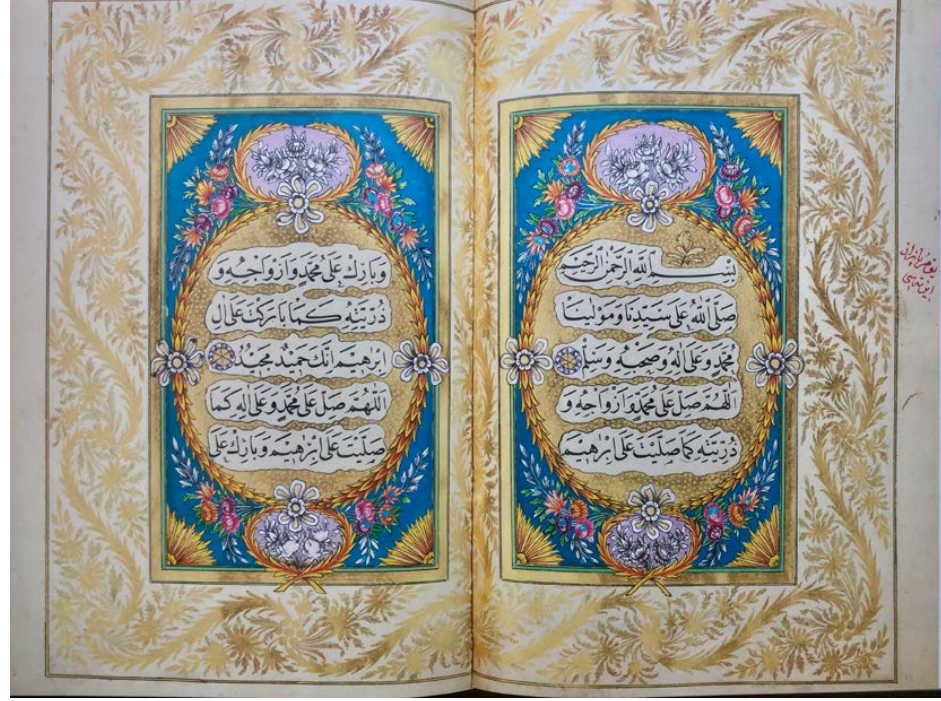 بِسْمِ اللّٰهِ الرَّحْمٰنِ الرَّحِيمِ
صَلَّى اللّٰهُ عَلٰى سَيِّدِنَا وَمَوْلٰينَا
مُحَمَّدٍ وَعَلٰى اٰلِهٖ وَصَحْبِهٖ وَسَلَّمَ
اَللّٰهُمَّ صَلِّ عَلٰى مُحَمَّدٍ وَاَزْوَاجِهٖ وَ
ذُرِّيَّتِهٖ كَمَا صَلَّيْتَ عَلٰى اِبْرٰهِيمَ
وَبَارِكْ عَلٰى مُحَمَّدٍ وَاَزْوَاجِهٖ وَ
ذُرِّيَّتِهٖ كَمَا بَارَكْتَ عَلٰى اٰلِ
اِبْرٰهِيمَ اِنَّكَ حَمِيدٌ مَجِيدٌ
اَللّٰهُمَّ صَلِّ عَلٰى مُحَمَّدٍ وَعَلٰى اٰلِهٖ كَمَا
صَلَّيْتَ عَلٰى اِبْرٰهِيمَ وَبَارِكْ عَلٰى